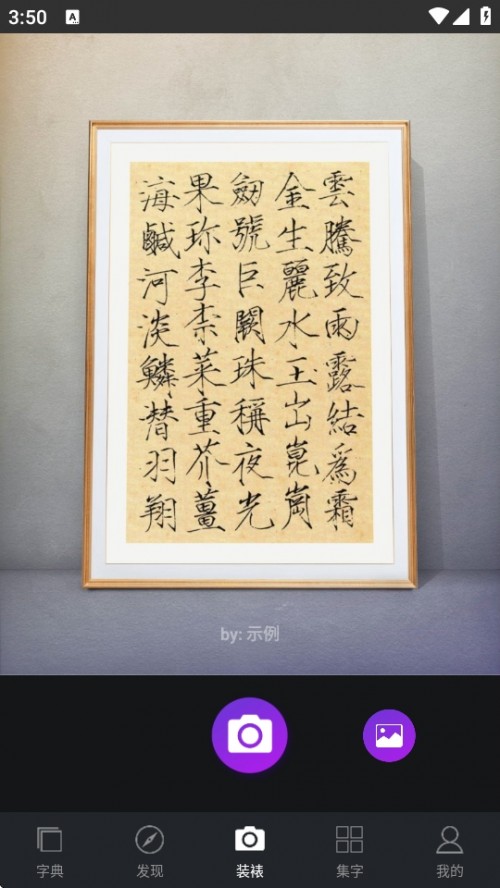 3:50
A
雲騰致雨露結爲霜
金生麗水玉出崑崗
劒號巨闕珠稱夜光
果珍李柰菜重芥薑
海鹹河淡鱗潛羽翔
by: 示例
字典
发现
装裱
集字
我的